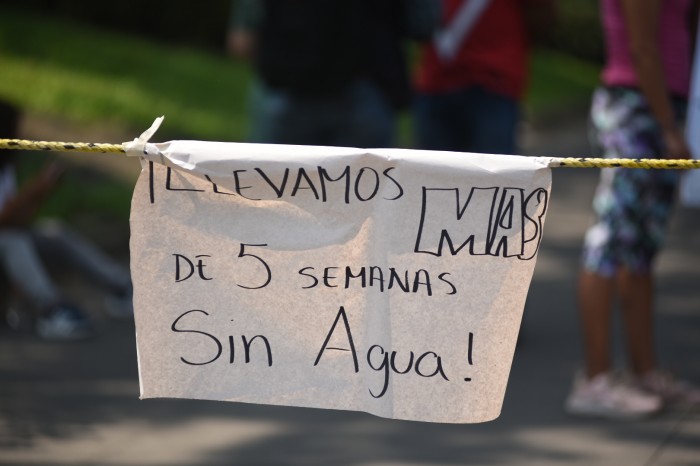 ¡LLEVAMOS MAS
DE 5 SEMANAS
Sin Agua!